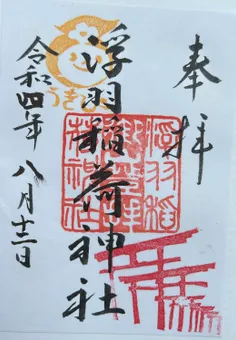 奉拝
浮羽稲荷神社
令和四年八月十二日
浮羽稲
荷神社
うきは